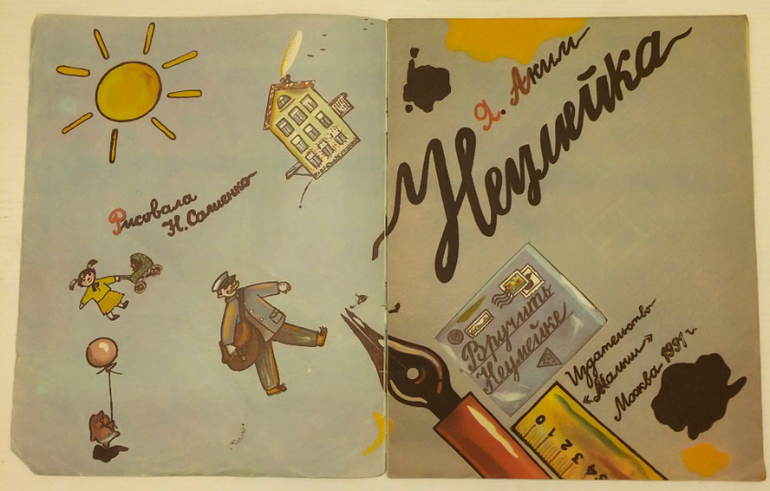 Рисовала
Н. Салиенко
Я. Аким
Неумейка
Вручить
Неумейке
Издательство
«Малыш»
Москва 1991 г.
4 3 2 1 0